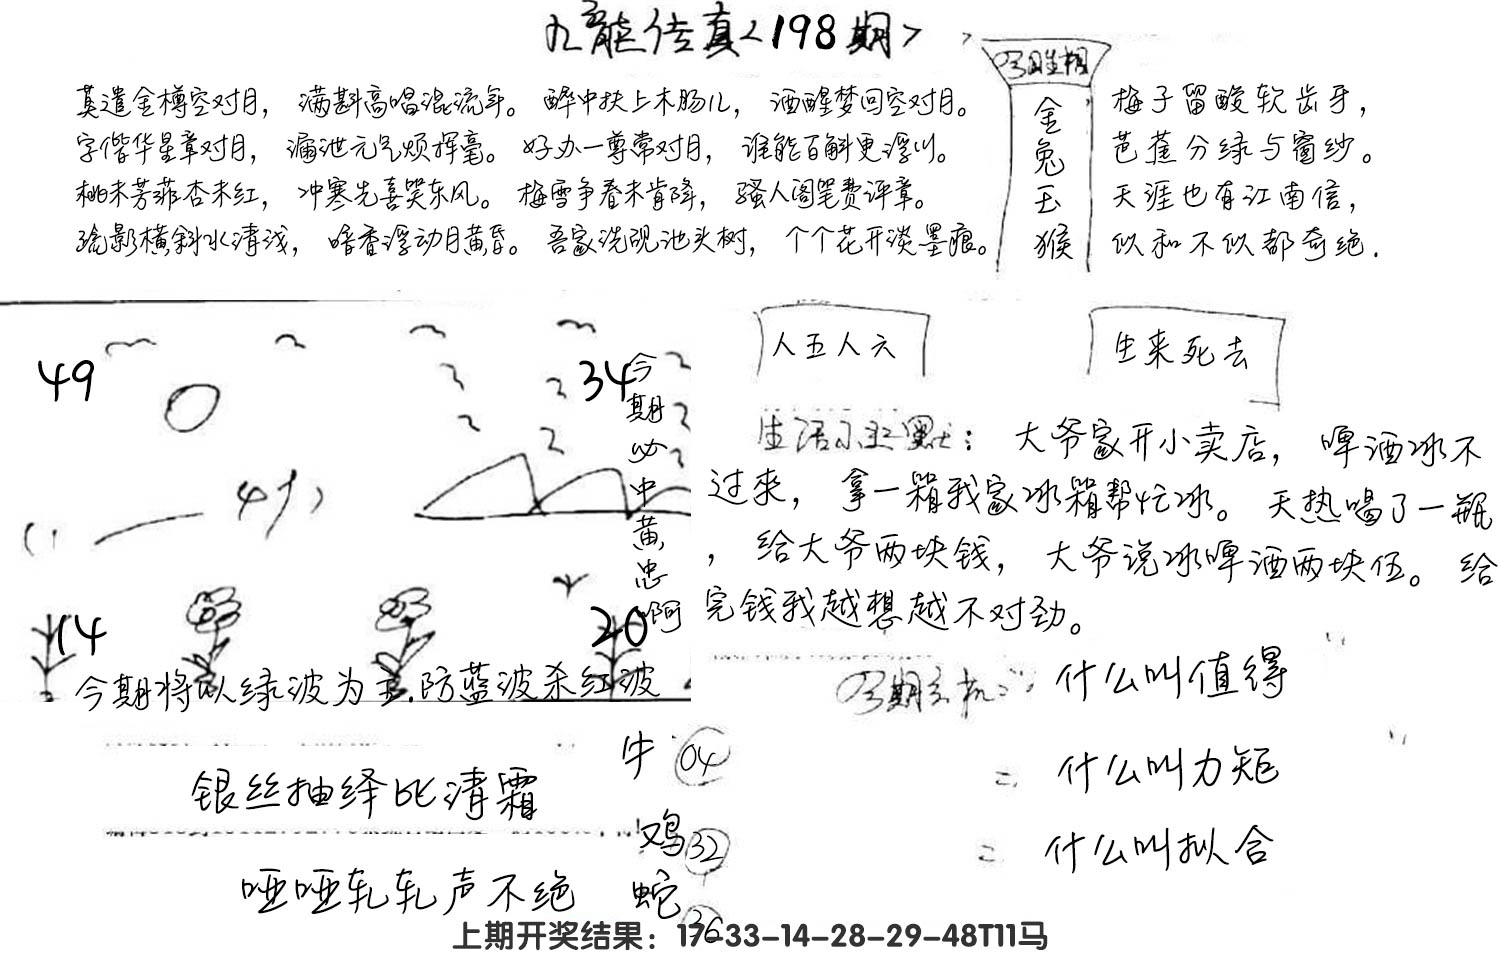 九龍传真<198期>
莫遣金樽空对月， 满斟高唱混流年。 醉中扶上木肠儿， 酒醒梦回空对月。
字偕华星章对月， 漏泄元气烦挥毫。 好办一尊常对月， 谁能百斛更浮川。
桃未芳菲杏未红， 冲寒先喜笑东风。 梅雪争春未肯降， 骚人阁笔费评章。
疏影横斜水清浅， 暗香浮动月黄昏。 吾家洗砚池头树， 个个花开淡墨痕。
金兔玉猴
梅子留酸软齿牙，
芭蕉分绿与窗纱。
天涯也有江南信，
似和不似都奇绝.
49
34
今期必中黄忠啊
14
20
今期将以绿波为主.防蓝波杀红波
人五人六
生来死去
大爷家开小卖店， 啤酒冰不
过来， 拿一箱我家冰箱帮忙冰。 天热喝了一瓶
， 给大爷两块钱， 大爷说冰啤酒两块伍。 给
完钱我越想越不对劲。
什么叫值得
什么叫力矩
什么叫拟合
银丝抽绎比清霜
哑哑轧轧声不绝
牛 04
鸡 32
蛇 36
上期开奖结果：17-33-14-28-29-48T11马